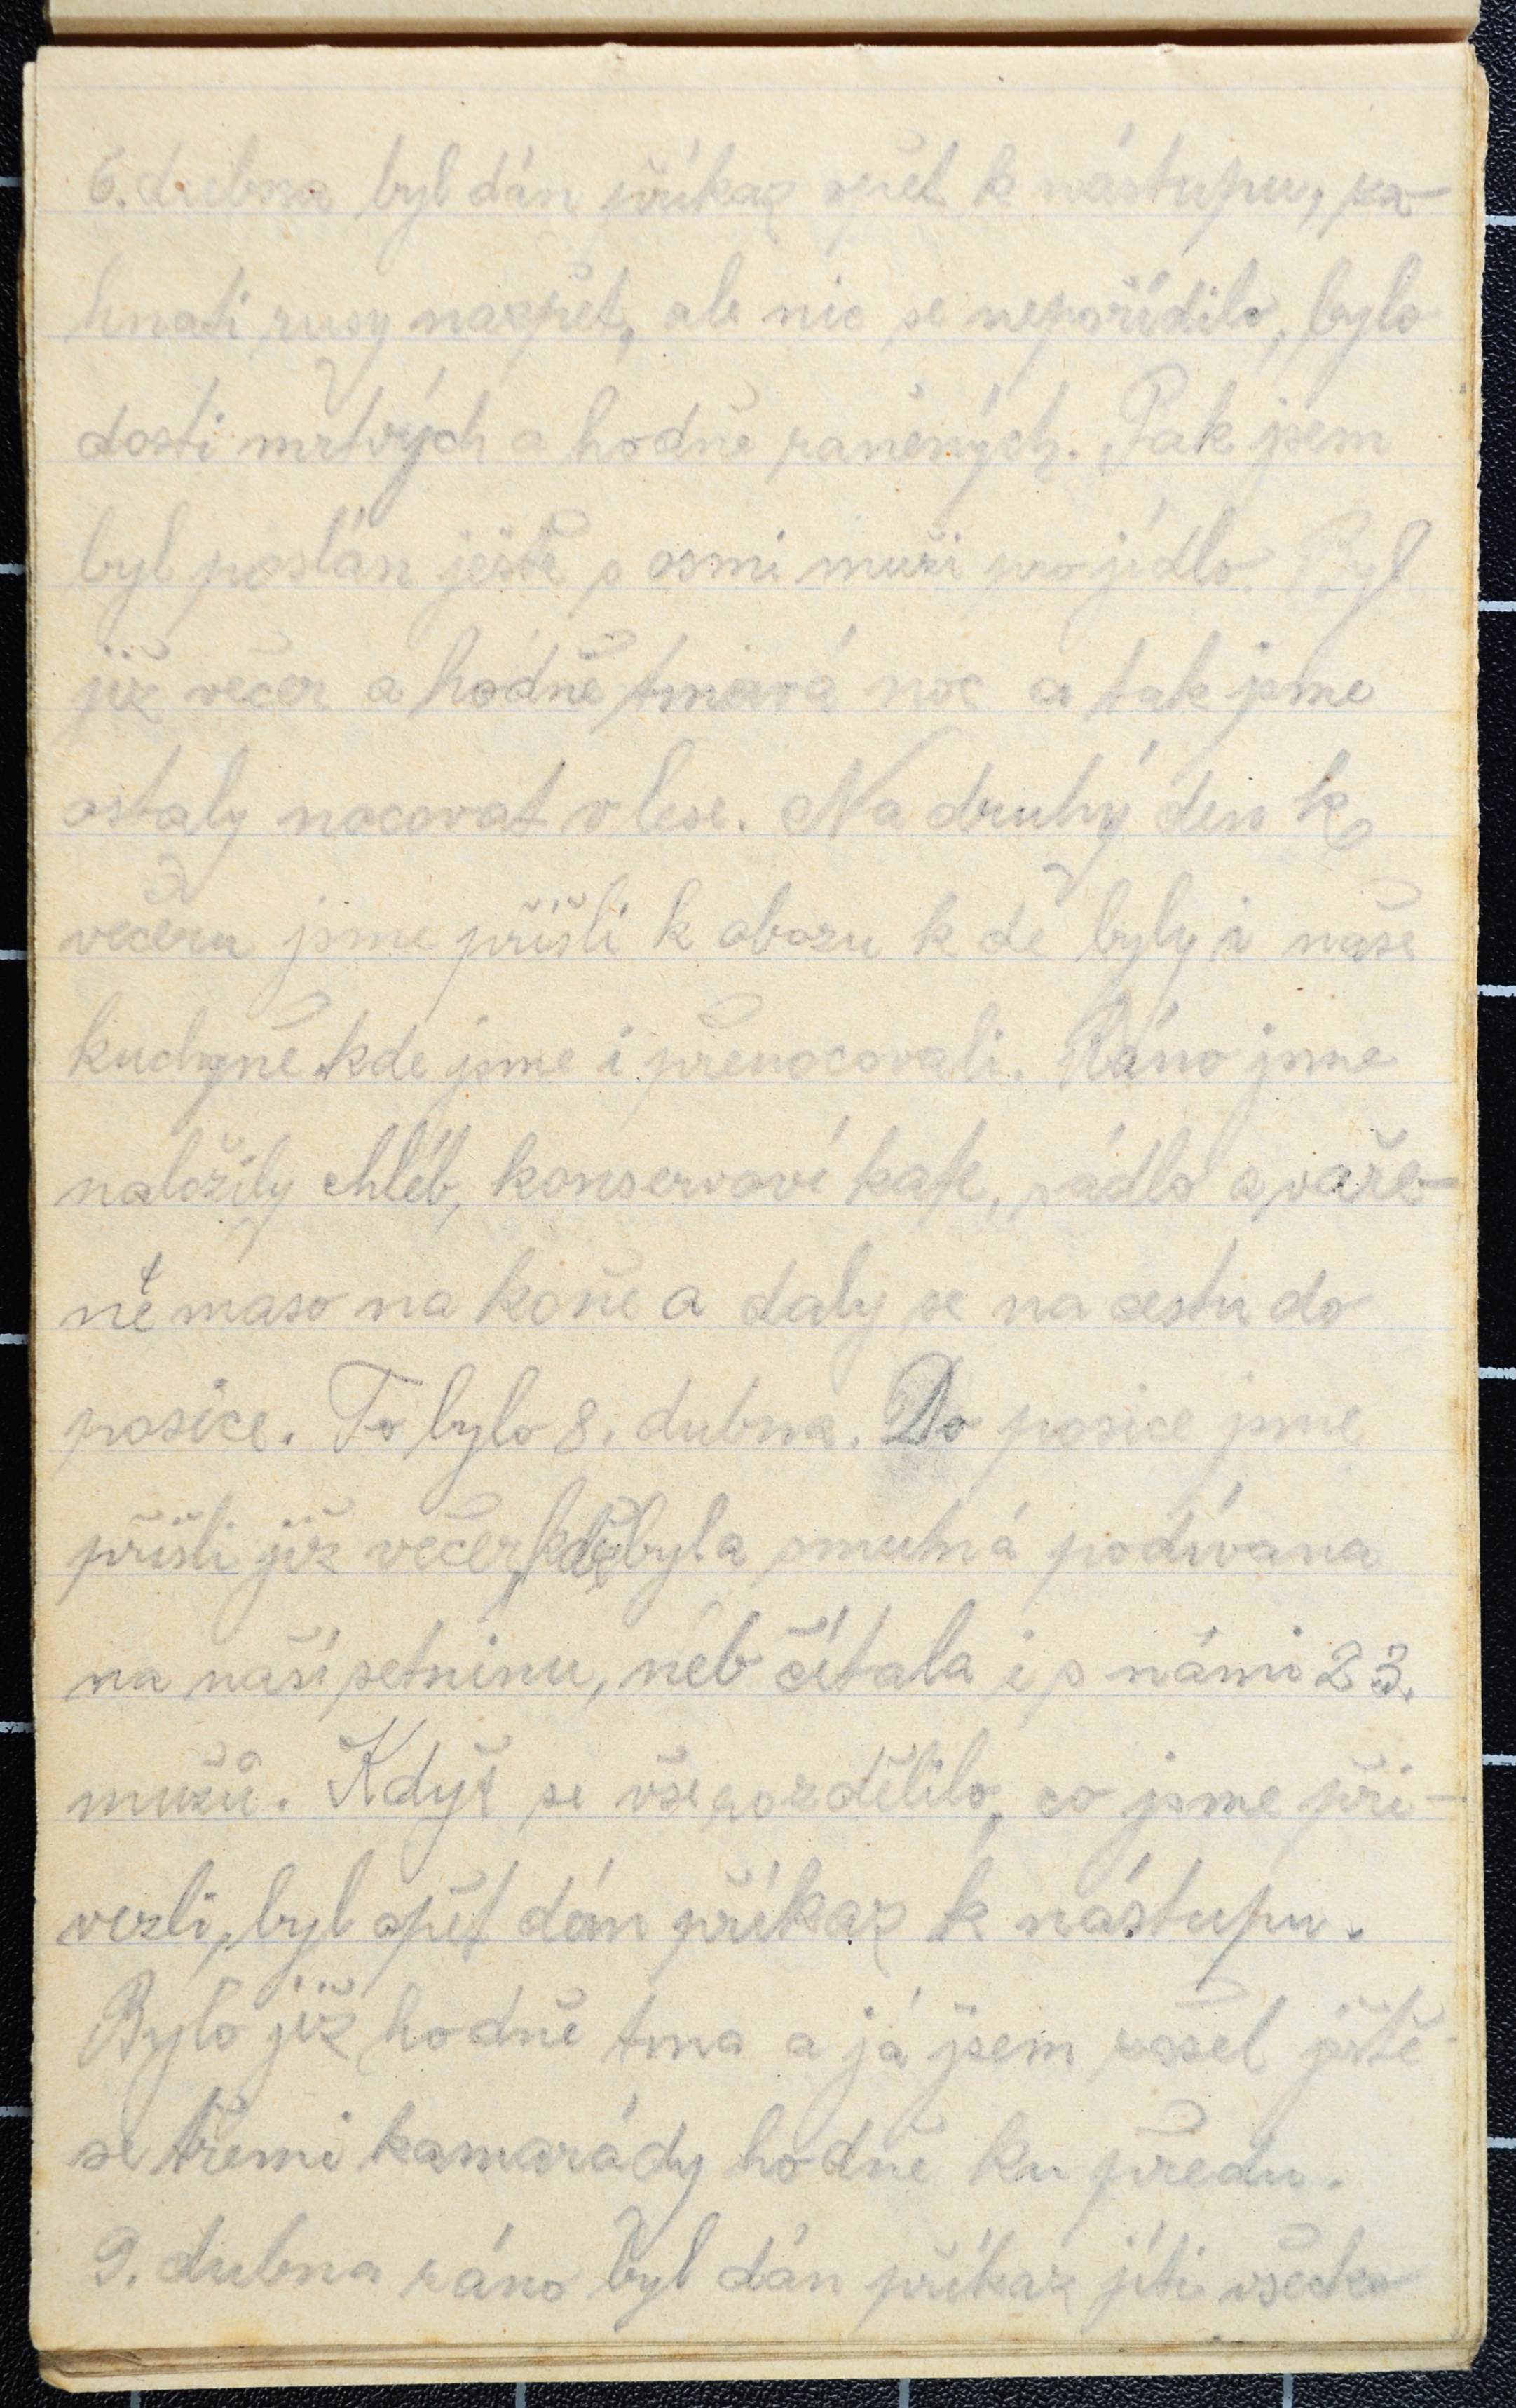 6. dubna byl dán příkaz opět k nástupu, za-
hnati rusy nazpět, ale nic se nepořídilo, bylo
dosti mrtvých a hodně raněných. Pak jsem
byl poslán ještě s osmi muži pro jídlo. Byl
již večer a hodně tmavá noc a tak jsme
ostaly nocovat v lese. Na druhý den k
večeru jsme přišli k obozu k de byly i naše
kuchyně kde jsme i přenocovali. Ráno jsme
naložily chléb, konservoví kafe, sádlo a vaře-
né maso na koně a daly se na cestu do
posice. To bylo 8. dubna. Do posice jsme
přišli již večer, kde byla smutná podívaná
na naší setninu, neb čítala i s námi 23.
mužů. Když se vše rozdělilo, co jsme při-
vezli, byl opět dán příkaz k nástupu.
Bylo již hodně tma a já jsem zašel ještě
se třemi kamarády hodně ku předu.
9. dubna ráno byl dán příkaz jíti všecko